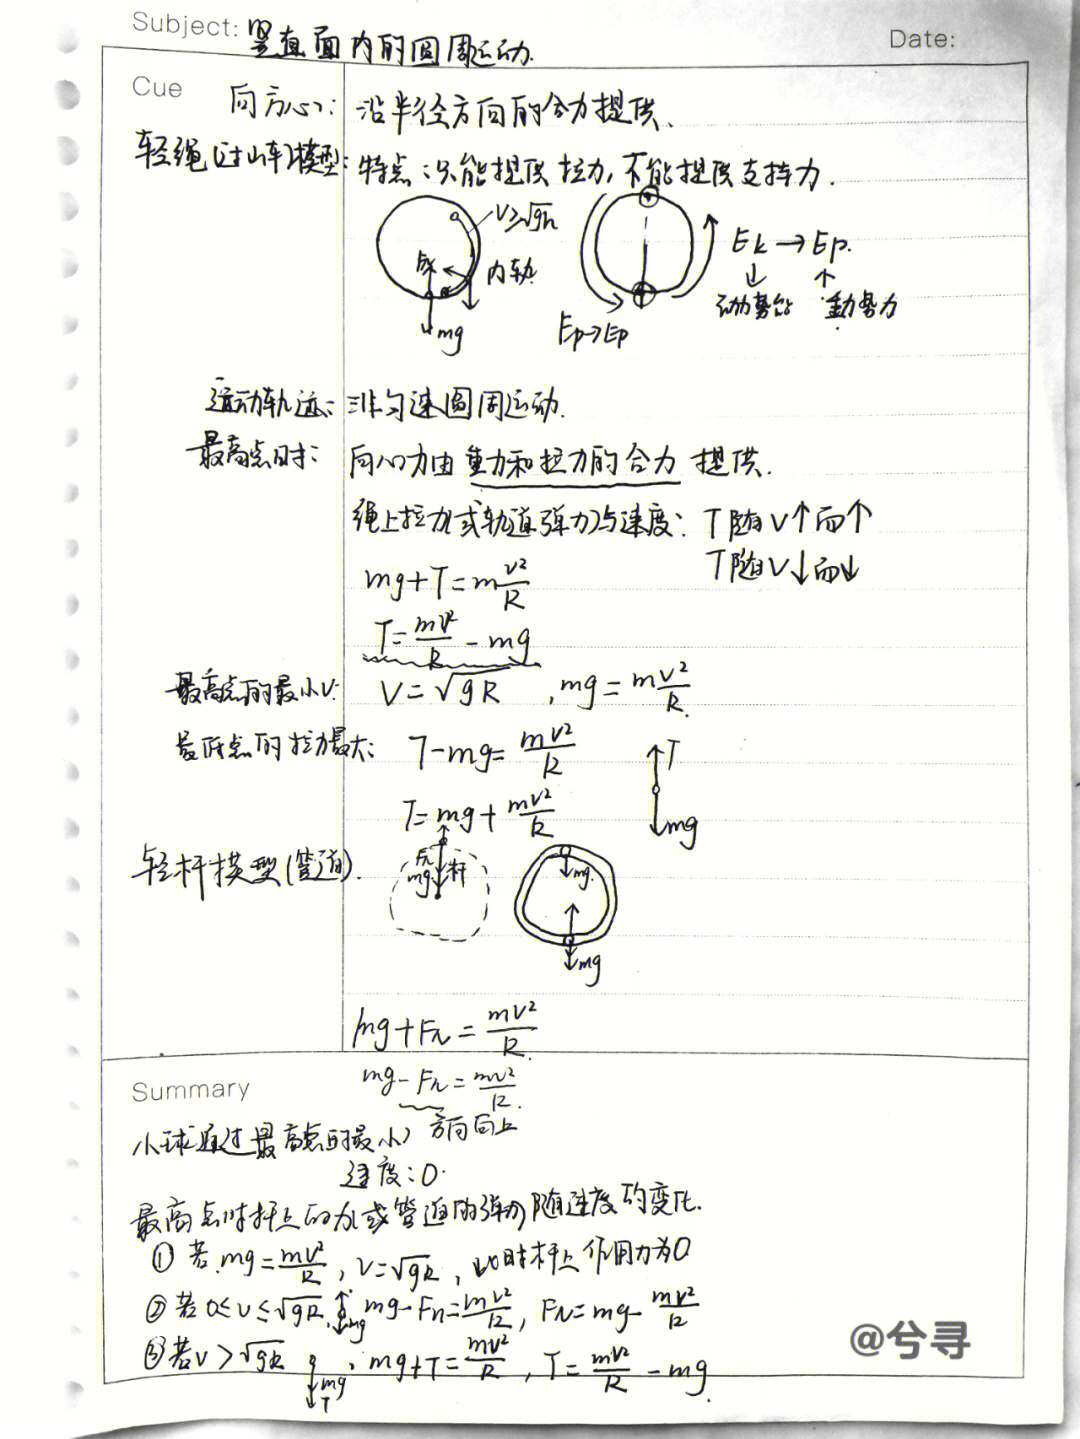 Subject: 竖直面内的圆周运动.
Date:
Cue
向心力: 沿半径方向的合力提供.
轻绳(过山车)模型: 特点:只能提供拉力,不能提供支持力.
V≥√gR
内轨
mg
Ek→Ep.
动势能 重力势
Ep→Ep
运动轨迹: 非匀速圆周运动.
最高点时: 向心力由重力和拉力的合力提供.
绳上拉力(或轨道弹力)与速度: T随V↑而↑
T随V↓而↓
mg+T=m v²/R
T=mv²/R-mg
最高点的最小V: V=√gR ,mg=m v²/R.
最低点的拉力最大: T-mg=mv²/R
T
T=mg+mv²/R
mg
轻杆模型(管道).
FN
mg
杆
mg.
mg
mg+FN=mv²/R.
Summary
mg-FN=mv²/R.
方向向上
小球通过最高点的最小
速度:0.
最高点时杆上的力或管道的弹力随速度的变化.
① 若mg=mv²/R, V=√gR, 此时杆上作用力为0
② 若0<v≤√gR. mg mg-FN=mv²/R, FN=mg-mv²/R
③若v>√gR mg T , mg+T=mv²/R, T=mv²/R-mg.
@兮寻